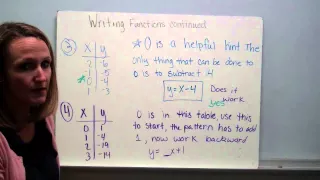 Writing Functions continued
③ x y
-2 -6
☆0 -4
1 -3
☆0 is a helpful hint The
only thing that can be done to
0 is to subtract 4
y=x-4
Does it
work
yes
④ x y
0 1
1 -4
2 -19
3 -14
0 is in this table, use this
to start, the pattern has to add
1, now work backward
y= _x+1